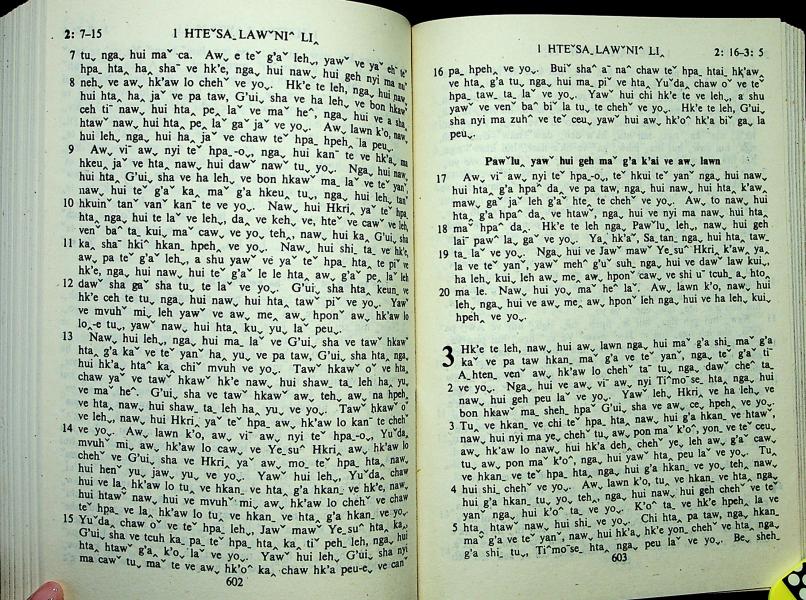 2: 7–15
1 HTEˇSAˍ LAWˇNIˆ LIꞈ
7 tuˬ, ngaˬ hui maˇ ca. Awˬ e teˇ g'aˇ lehˬ, yawˇ ve yaˇ ehˆ teˇ
hpaˍ htaꞈ haˬ shaˉ ve hk'e, ngaˬ hui nawˬ hui geh nyi ma
8 nehˬ ve awˬ hk'aw lo chehˇ ve yoˬ. Hk'e te leh, ngaˬ hui nawˬ
hui htaꞈ haˬ jaˇ ve pa taw, G'uiˬ sha ve ha lehˬ ve bon hkawˇ
ceh tiˉ nawˬ hui htaꞈ peꞈ laˇ ve maˇ heˆ, ngaˬ hui ve a sha
htawˇ nawˬ hui htaꞈ peꞈ laˇ gaˇ jaˇ ve yoˬ. Awˬ lawn k'o, nawˬ
hui leh, ngaˬ hui haˬ jaˇ ve chaw teˇ hpaˍ hpehꞈ laˬ peuˬ.
9 Awˬ viˉ awˬ nyi teˇ hpaˍ-oˬ, ngaˬ hui kanˉ te ve hk'aˬ ma
hkeuˬ jaˇ ve htaꞈ nawˬ hui dawˇ nawˇ tuˬ yoˬ. Ngaˬ hui nawˬ
hui htaꞈ G'uiˬ sha ve ha lehˬ ve bon hkawˇ maˍ laˇ ve teˇ yanˇ,
nawˬ hui teˇ g'aˇ kaˬ maˇ g'a hkeuˬ tuˬ, ngaˬ hui lehꞈ tanˇ
10 hkuinˇ tanˇ vanˇ kanˉ te ve yoˬ. Nawˬ hui Hkriꞈ yaˇ teˇ hpaˍ
htaꞈ ngaˬ hui te laˇ ve lehˬ, daˬ ve kehˬ ve, hteˇ ve cawˇ ve leh,
venˇ baˆ taˍ kuiˬ maˇ cawˬ ve yoˬ tehꞈ, nawˬ hui kaˬ G'uiˬ sha
11 kaˬ shaˉ hkiˆ hkanˍ hpehꞈ ve yoˬ. Nawˬ hui shiˍ taˍ ve hk'e,
awˬ pa teˇ g'aˇ lehˬ, a shu yawˇ ve yaˇ teˇ hpaˍ htaꞈ te piˇ ve
hk'e, ngaˬ hui nawˬ hui teˇ g'aˇ le le htaꞈ awˬ g'aˇ peꞈ laˇ leh
12 dawˇ sha gaˇ sha tuˬ te laˇ ve yoˬ. G'uiˬ sha htaꞈ keunˬ ve
hk'e ceh te tuˬ, ngaˬ hui nawˬ hui htaꞈ tawˇ piˇ ve yoˬ. Yawˇ
ve mvuhˇ miˬ leh yawˇ ve awˬ meꞈ awˬ hponˇ awˬ hk'aw lo
loˬ-e tuˬ, yawˇ nawˬ hui htaꞈ kuˬ yuˬ laˇ peuˬ.
13 Nawˬ hui lehˬ, ngaˬ hui maˍ laˇ ve G'uiˬ sha ve tawˇ hkawˇ
htaꞈ g'a kaˇ ve teˇ yanˇ haˬ yuˬ ve pa taw, G'uiˬ sha htaꞈ ngaˬ
hui hk'aˬ htaˆ kaˬ chiˇ mvuh ve yoˬ. Tawˇ hkawˇ oˇ ve htaꞈ
chaw yaˇ ve tawˇ hkawˇ hk'e nawˬ hui shawˬ taˍ leh haˬ yuˬ
ve maˇ heˆ. G'uiˬ sha ve tawˇ hkawˇ awˬ tehꞈ awˬ na hpehꞈ
ve htaꞈ nawˬ hui shawˬ taˍ leh haˬ yuˬ ve yoˬ. Tawˇ hkawˇ oˇ
ve lehˬ, nawˬ hui Hkriꞈ yaˇ teˇ hpaˍ awˬ hk'aw lo kanˉ te chehˇ
14 ve yoˬ. Awˬ lawn k'o, awˬ viˉ awˬ nyi teˇ hpaˍ-oˬ, Yuˇdaˬ
mvuhˇ miˬ awˬ hk'aw lo cawˬ ve Yeˍsuˆ Hkriꞈ awˬ hk'aw lo
chehˇ ve G'uiˬ sha ve Hkriꞈ yaˇ awˬ moˍ teˇ hpaˍ htaꞈ nawˬ
hui henˇ yuˬ jawˬ yuˬ ve yoˬ. Yawˇ hui lehˬ, Yuˇdaˬ chaw
hui ve laꞈ hk'aw lo tuˬ ve hkanˍ ve htaꞈ g'a hkanˍ ve hk'e, nawˬ
hui htawˇ nawˬ hui ve mvuhˇ miˬ awˬ hk'aw lo chehˇ ve chaw
teˇ hpaˍ ve laꞈ hk'aw lo tuˬ ve hkanˍ ve htaꞈ g'a hkanˍ ve yoˬ.
15 Yuˇdaˬ chaw oˇ ve teˇ hpaˍ lehˬ, Jawˇ mawˇ Yeˍsuˆ htaꞈ kaˬ,
G'uiˬ sha ve tcuh kaˍ paˍ teˇ hpaˍ htaꞈ kaˬ tiˇ pehˇ leh, ngaˬ hui
htaꞈ htawˇ g'aˬ k'oˬ laˇ ve yoˬ. Yawˇ hui lehˬ, G'uiˬ sha nyi
ma cawˇ tuˬ maˇ te ve awˬ hk'oˆ kaˬ chaw hk'a peu-eˬ ve canˇ
602
1 HTEˇSAˍ LAWˇNIˆ LIꞈ
2: 16–3: 5
16 paˬ hpehꞈ ve yoˬ. Buiˇ shaˆ aˉ naˆ chaw teˇ hpaˍ htaiˍ hk'awˬ
ve htaꞈ g'a tuˬ, ngaˬ hui maˬ piˇ ve htaꞈ Yuˇdaˬ chaw oˇ ve teˇ
hpaˍ tawˬ taˍ laˇ ve yoˬ. Yawˇ hui chi hk'e te ve lehˬ, a shu
yawˇ ve venˇ baˆ biˇ la tuˬ te chehˇ ve yoˬ. Hk'e te lehˬ, G'uiˬ
sha nyi ma zuhˆ ve teˇ ceuˬ, yawˇ hui awˬ hk'oˆ hk'a biˇ gaˬ la
peuˬ.
Pawˇluˬ yawˇ hui geh maˇ g'a k'ai ve awˬ lawn
17 Awˬ viˉ awˬ nyi teˇ hpaˍ-oˬ, teˇ hkui teˇ yanˇ ngaˬ hui nawˬ
hui htaꞈ g'a hpaˆ daˬ ve pa taw, ngaˬ hui nawˬ hui htaꞈ k'awˬ
mawˬ gaˇ jaˇ leh g'aˇ hteˬ te chehˇ ve yoˬ. Aw to nawˬ hui
htaꞈ g'a hpaˆ daˬ ve htawˇ, ngaˬ hui ve nyi ma nawˬ hui htaꞈ
18 maˇ hpaˆ daˬ. Hk'e te leh ngaˬ Pawˇluˬ lehˬ, nawˬ hui geh
laiˉ pawˇ laˬ gaˇ ve yoˬ. Yaˬ hk'aˇ, Saˍtanˬ ngaˬ hui htaꞈ tawˬ
19 taˍ laˇ ve yoˬ. Ngaˬ hui ve Jawˇ mawˇ Yeˍsuˆ Hkriꞈ k'awˬ yaˬ
la ve teˇ yanˇ, yawˇ mehˆ g'uˇ suhˬ ngaˬ hui ve dawˇ law kuiˬ,
ha lehˬ kuiˬ leh awˬ meꞈ awˬ hponˇ cawˬ ve shi uˇ tcuhˬ aˬ hto
20 ma le. Nawˬ hui yoˬ maˇ heˆ laˇ. Awˬ lawn k'o, nawˬ hui
lehˬ, ngaˬ hui ve awˬ meꞈ awˬ hponˇ leh ngaˬ hui ve ha lehˬ kuiˬ
hpehꞈ ve yoˬ.
3 Hk'e te leh, nawˬ hui awˬ lawn ngaˬ hui maˇ g'a shiˍ maˇ g'a
kaˇ ve pa taw hkanˍ maˇ g'a ve teˇ yanˇ, ngaˬ teˇ g'aˇ tiˉ
Aˍhtenˬ venˇ awˬ hk'aw lo chehˇ taˉ tuˬ, ngaˬ dawˇ cheˆ taˍ
2 ve yoˬ. Ngaˬ hui ve awˬ viˉ awˬ nyi Tiˆmoˇseˍ htaꞈ ngaˬ hui
nawˬ hui geh peu laˇ ve yoˬ. Yawˇ lehˬ, Hkriꞈ ve ha lehˬ ve
bon hkawˇ maˍ shehˍ hpaˇ G'uiˬ sha ve awˬ ceꞈ hpehꞈ ve yoˬ.
3 Tuˬ ve hkanˍ ve chi teˇ hpaˍ htaꞈ nawˬ hui g'a hkanˍ ve htawˇ,
nawˬ hui nyi ma yeˬ chehˇ tuˬ, awˬ pon maˇ k'oˆ, yon ve teˇ ceuˬ
awˬ hk'aw lo nawˬ hui hk'a deh chehˇ yeˬ leh awˬ g'aˇ cawˬ
tuˬ, awˬ pon maˇ k'oˆ, ngaˬ hui yawˇ htaꞈ peu laˇ ve yoˬ. Tuˬ
ve hkanˍ ve teˇ hpaˍ htaꞈ ngaˬ hui g'a hkanˍ ve yoˬ tehꞈ, nawˬ
4 hui shiˬ chehˇ ve yoˬ. Awˬ lawn k'o, tuˬ ve hkanˍ ve htaꞈ ngaˬ
hui g'a hkanˍ tuˬ yoˬ tehꞈ, ngaˬ hui nawˬ hui geh chehˇ ve teˇ
yanˇ ngaˬ hui k'oˆ taˍ ve yoˬ. K'oˆ taˍ ve hk'e hpehꞈ la ve
5 htaꞈ htawˇ nawˬ hui shiˬ ve yoˬ. Chi htaꞈ pa taw, ngaˬ hkanˍ
maˇ g'a ve teˇ yanˇ, nawˬ hui hk'aˬ hk'e yon chehˇ ve htaꞈ ngaˬ
g'a shiˍ tuˬ, Tiˆmoˇseˍ htaꞈ ngaˬ peu laˇ ve yoˬ. Beˬ sheh
603